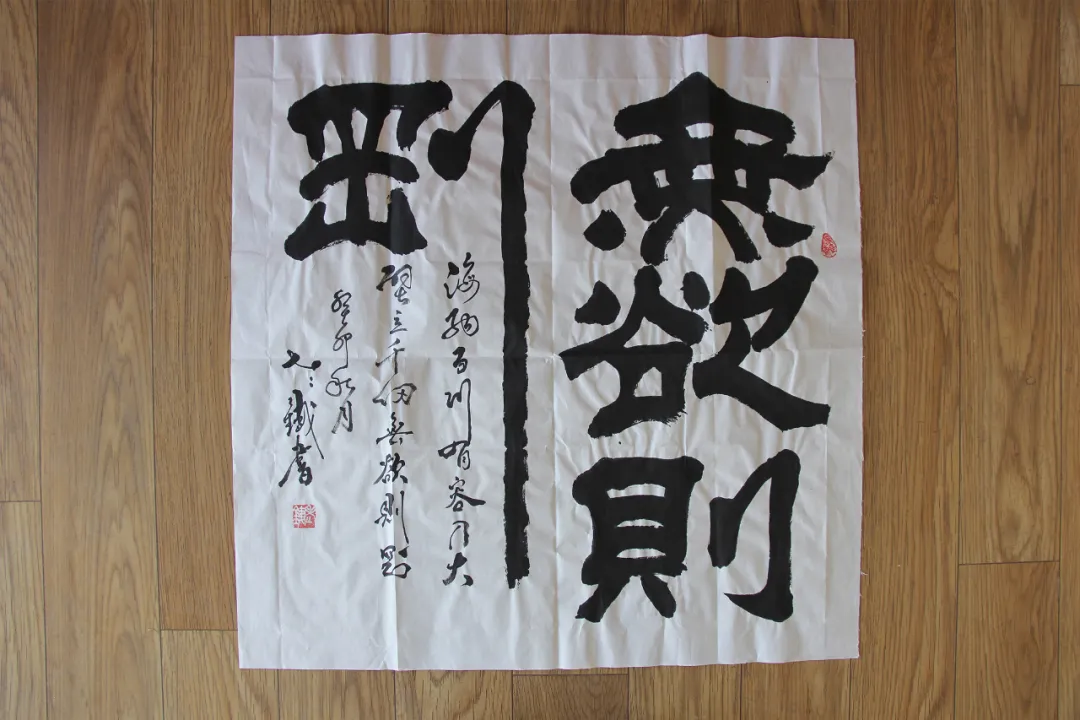 無欲則
剛
海納百川有容乃大
壁立千仞無欲則剛
癸卯秋月
鐵書